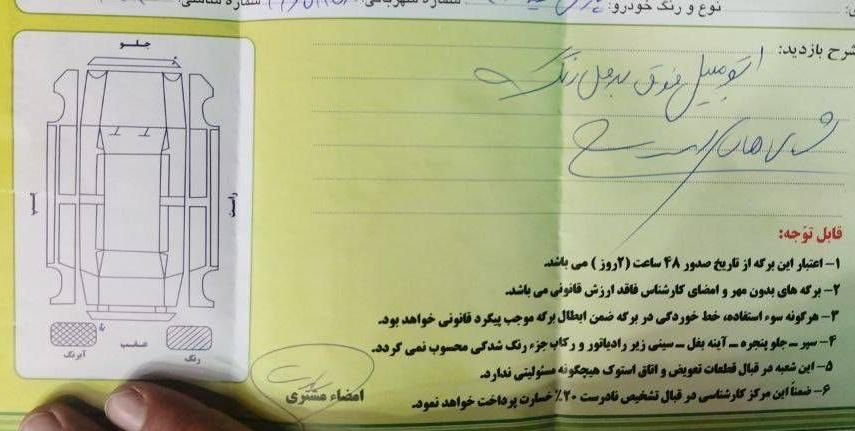 نوع و رنگ خودرو:
شماره شهربانی:
شماره شاسی:
شرح بازدید:
اتومبیل فوق بدون رنگ
جلو
راست
چپ
عقب
رنگ
آبرنگ
قابل توجه:
۱- اعتبار این برگه از تاریخ صدور ۴۸ ساعت (۲روز) می باشد.
۲- برگه های بدون مهر و امضای کارشناس فاقد ارزش قانونی می باشد.
۳- هرگونه سوء استفاده، خط خوردگی در برگه ضمن ابطال برگه موجب پیگرد قانونی خواهد بود.
۴- سپر ــ جلو پنجره ــ آینه بغل ــ سینی زیر رادیاتور و رکاب جزء رنگ شدگی محسوب نمی گردد.
۵- این شعبه در قبال قطعات تعویض و اتاق استوک هیچگونه مسئولیتی ندارد.
۶- ضمناً این مرکز کارشناسی در قبال تشخیص نادرست ۲۰٪ خسارت پرداخت خواهد نمود.
امضاء مشتری